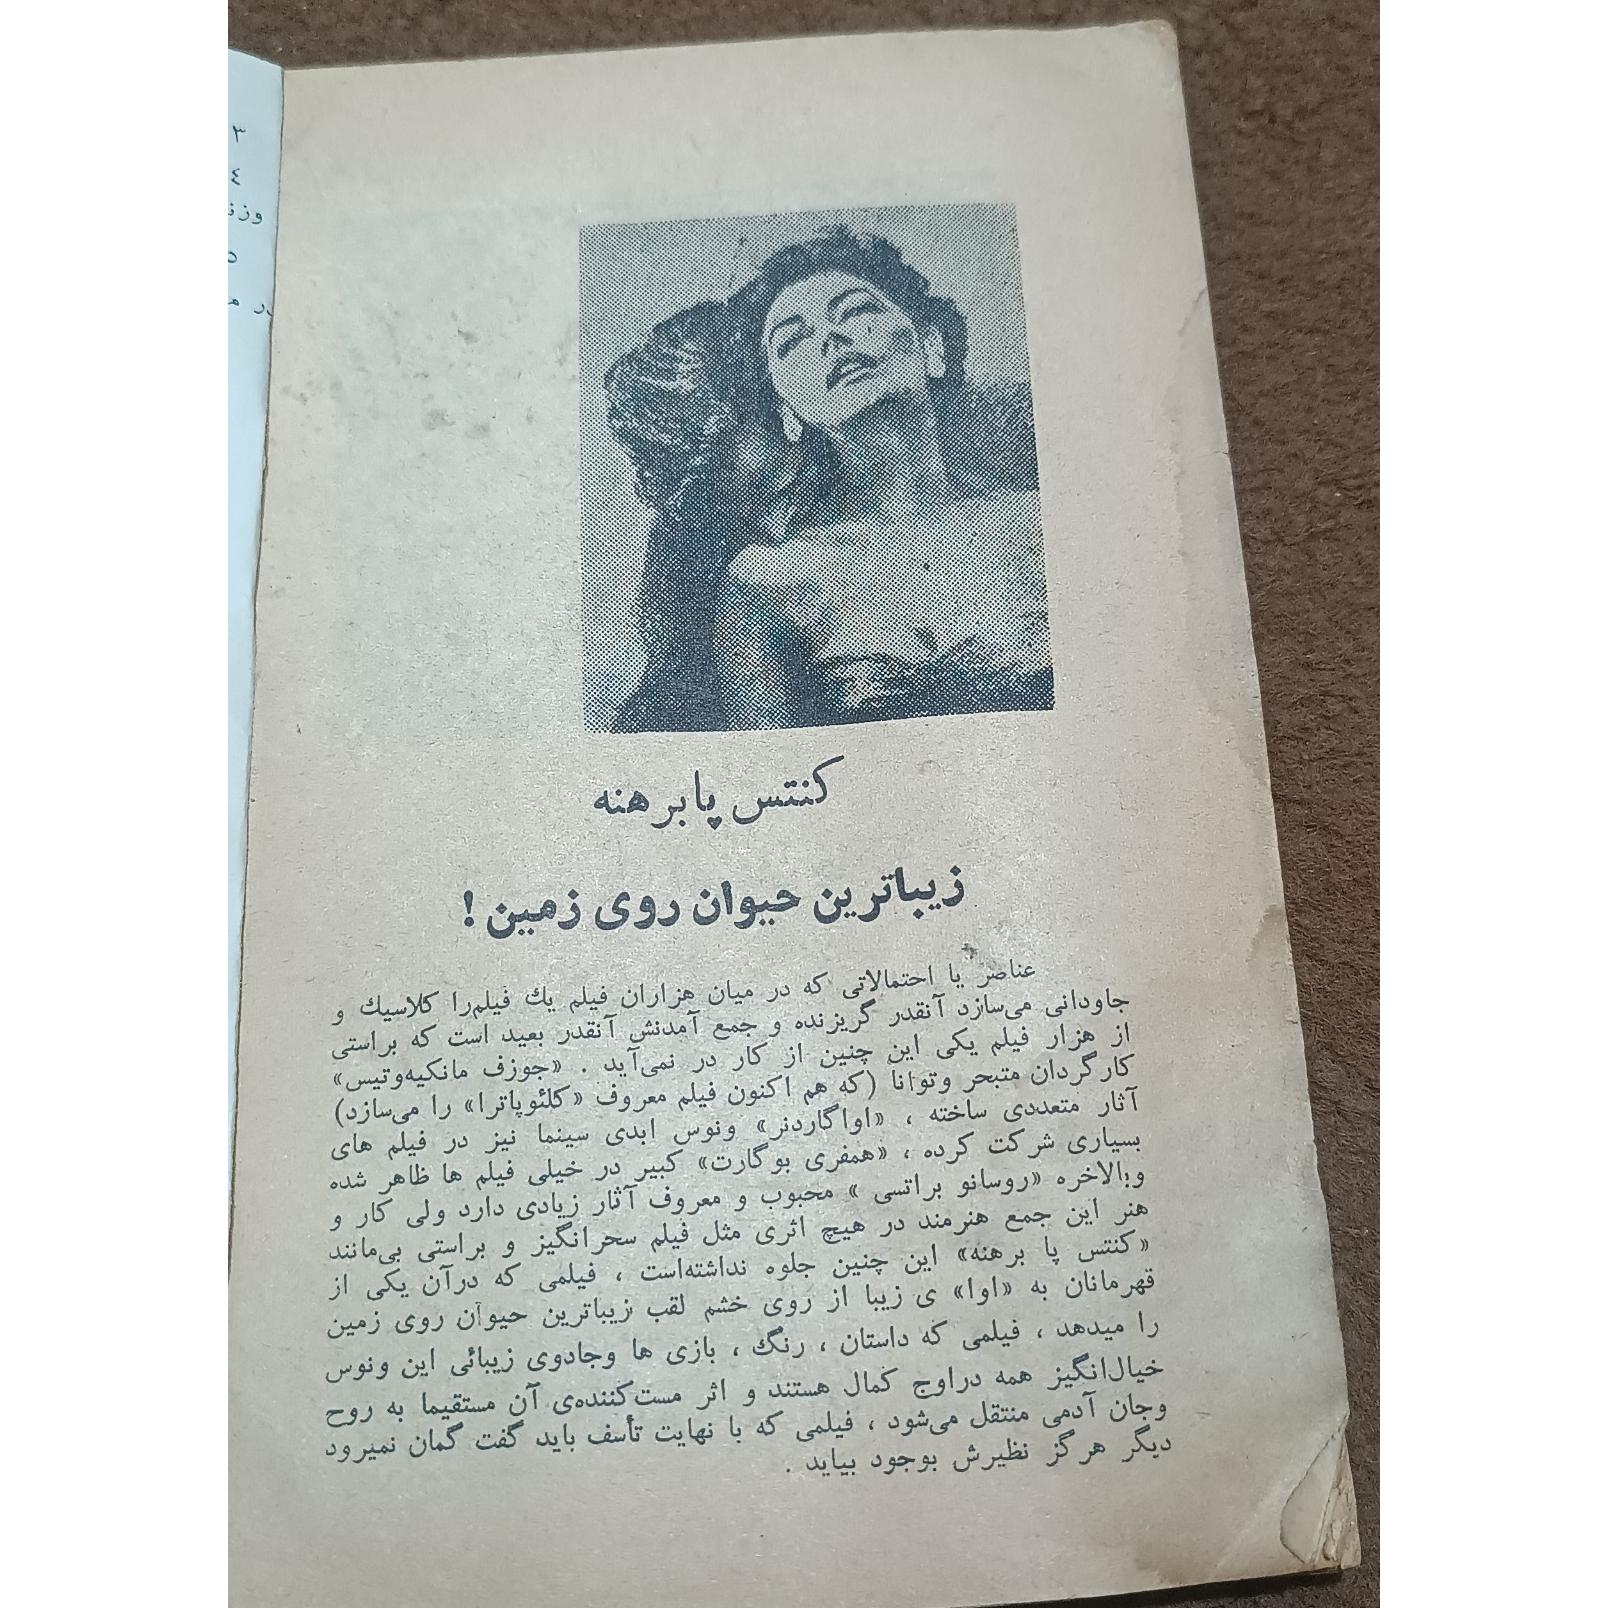 ۳
٤
وزن
۵
ر م
کنتس پا برهنه
زیباترین حیوان روی زمین !
عناصر یا احتمالاتی که در میان هزاران فیلم یك فیلم‌را کلاسیك و
جاودانی می‌سازد آنقدر گریزنده و جمع آمدنش آنقدر بعید است که براستی
از هزار فیلم یکی این چنین از کار در نمی‌آید . «جوزف مانکیه‌وتیس»
کارگردان متبحر وتوانا (که هم اکنون فیلم معروف «کلئوپاترا» را می‌سازد)
آثار متعددی ساخته ، «اواگاردنر» ونوس ابدی سینما نیز در فیلم های
بسیاری شرکت کرده ، «همفری بوگارت» کبیر در خیلی فیلم ها ظاهر شده
وبالاخره «روسانو براتسی » محبوب و معروف آثار زیادی دارد ولی کار و
هنر این جمع هنرمند در هیچ اثری مثل فیلم سحرانگیز و براستی بی‌مانند
«کنتس پا برهنه» این چنین جلوه نداشته‌است ، فیلمی که درآن یکی از
قهرمانان به «اوا» ی زیبا از روی خشم لقب زیباترین حیوان روی زمین
را میدهد ، فیلمی که داستان ، رنگ ، بازی ها وجادوی زیبائی این ونوس
خیال‌انگیز همه دراوج کمال هستند و اثر مست‌کننده‌ی آن مستقیما به روح
وجان آدمی منتقل می‌شود ، فیلمی که با نهایت تأسف باید گفت گمان نمیرود
دیگر هرگز نظیرش بوجود بیاید .